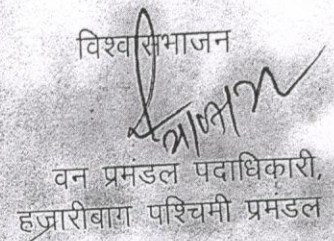 विश्वासभाजन
वन प्रमंडल पदाधिकारी,
हजारीबाग पश्चिमी प्रमंडल